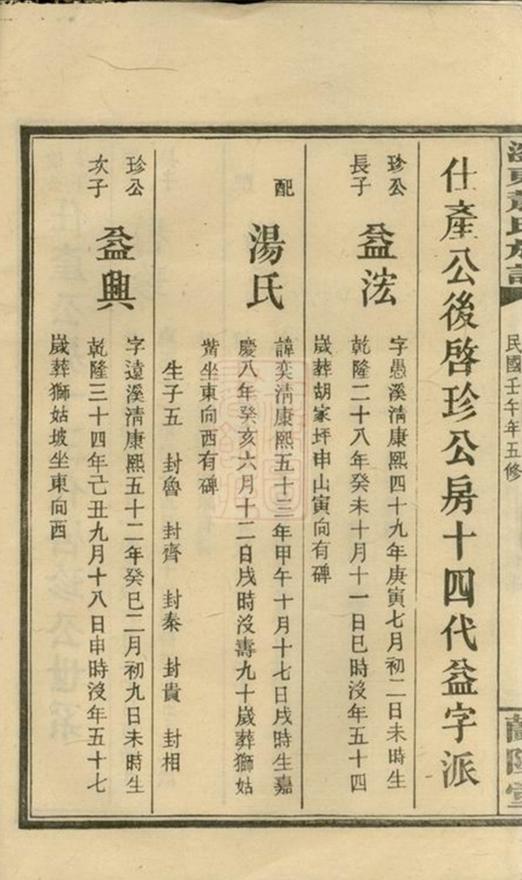 氏族譜
民國壬午年五修
蘭陵堂
仕產公後啓珍公房十四代益字派
珍公
長子
益浤
字愚溪清康熙四十九年庚寅七月初二日未時生
乾隆二十八年癸未十月十一日巳時沒年五十四
歲葬胡家坪申山寅向有碑
配
湯氏
諱奕清康熙五十三年甲午十月十七日戌時生嘉
慶八年癸亥六月十二日戌時沒壽九十歲葬獅姑
觜坐東向西有碑
生子五 封魯 封齊 封秦 封貴 封相
珍公
次子
益興
字遠溪清康熙五十二年癸巳二月初九日未時生
乾隆三十四年己丑九月十八日申時沒年五十七
歲葬獅姑坡坐東向西